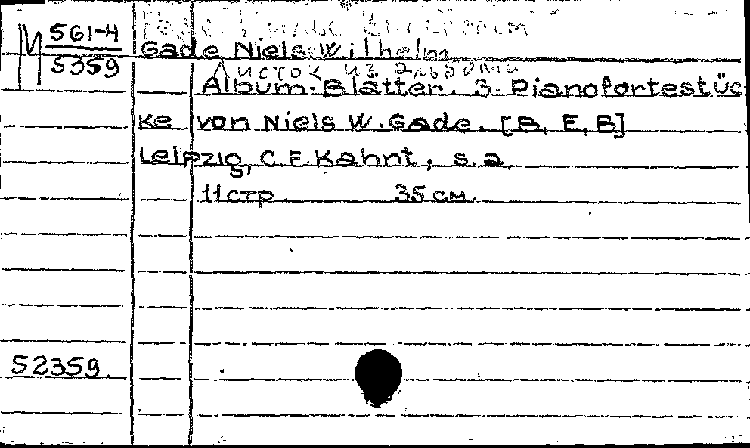 М 561-4
5359
Gade Niels Wilhelm
Листок из альбома
Album-Blätter. 3 Pianofortestüc
ke von Niels W. Gade. [B, E, B]
Leipzig, C.F. Kahnt, s.a.
11 стр. 35 см.
52359.